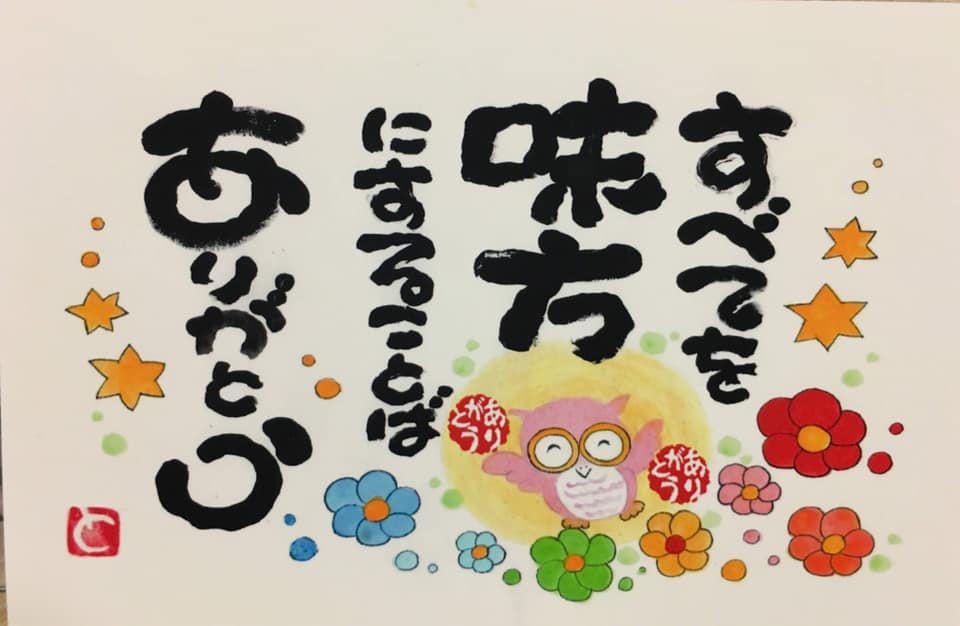 すべてを
味方
にすることば
ありがとう
ありがとう
ありがとう
と